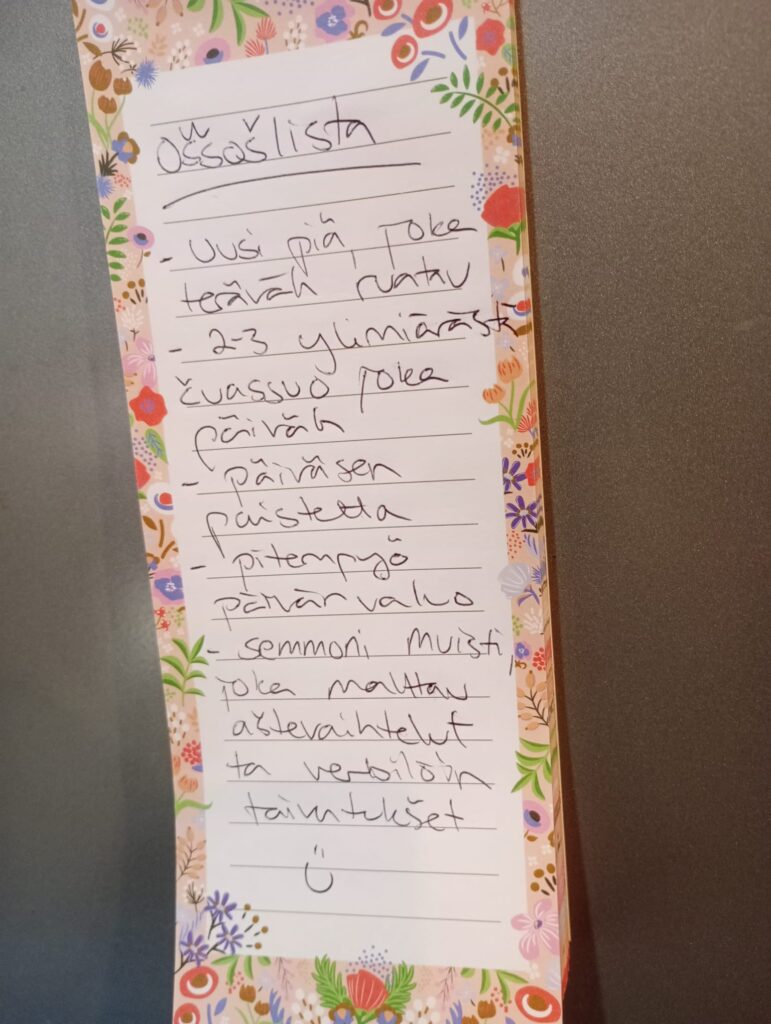 Oššoslista
- Uusi piä, joka
teräväh ruatau
- 2-3 ylimiäräistä
čuassuo joka
päiväh
- päiväsen
paistetta
- pitempyö
päivän valuo
- semmoni muisti,
joka malttau
aštevaihtelut
ta verbilöin
taivutukšet